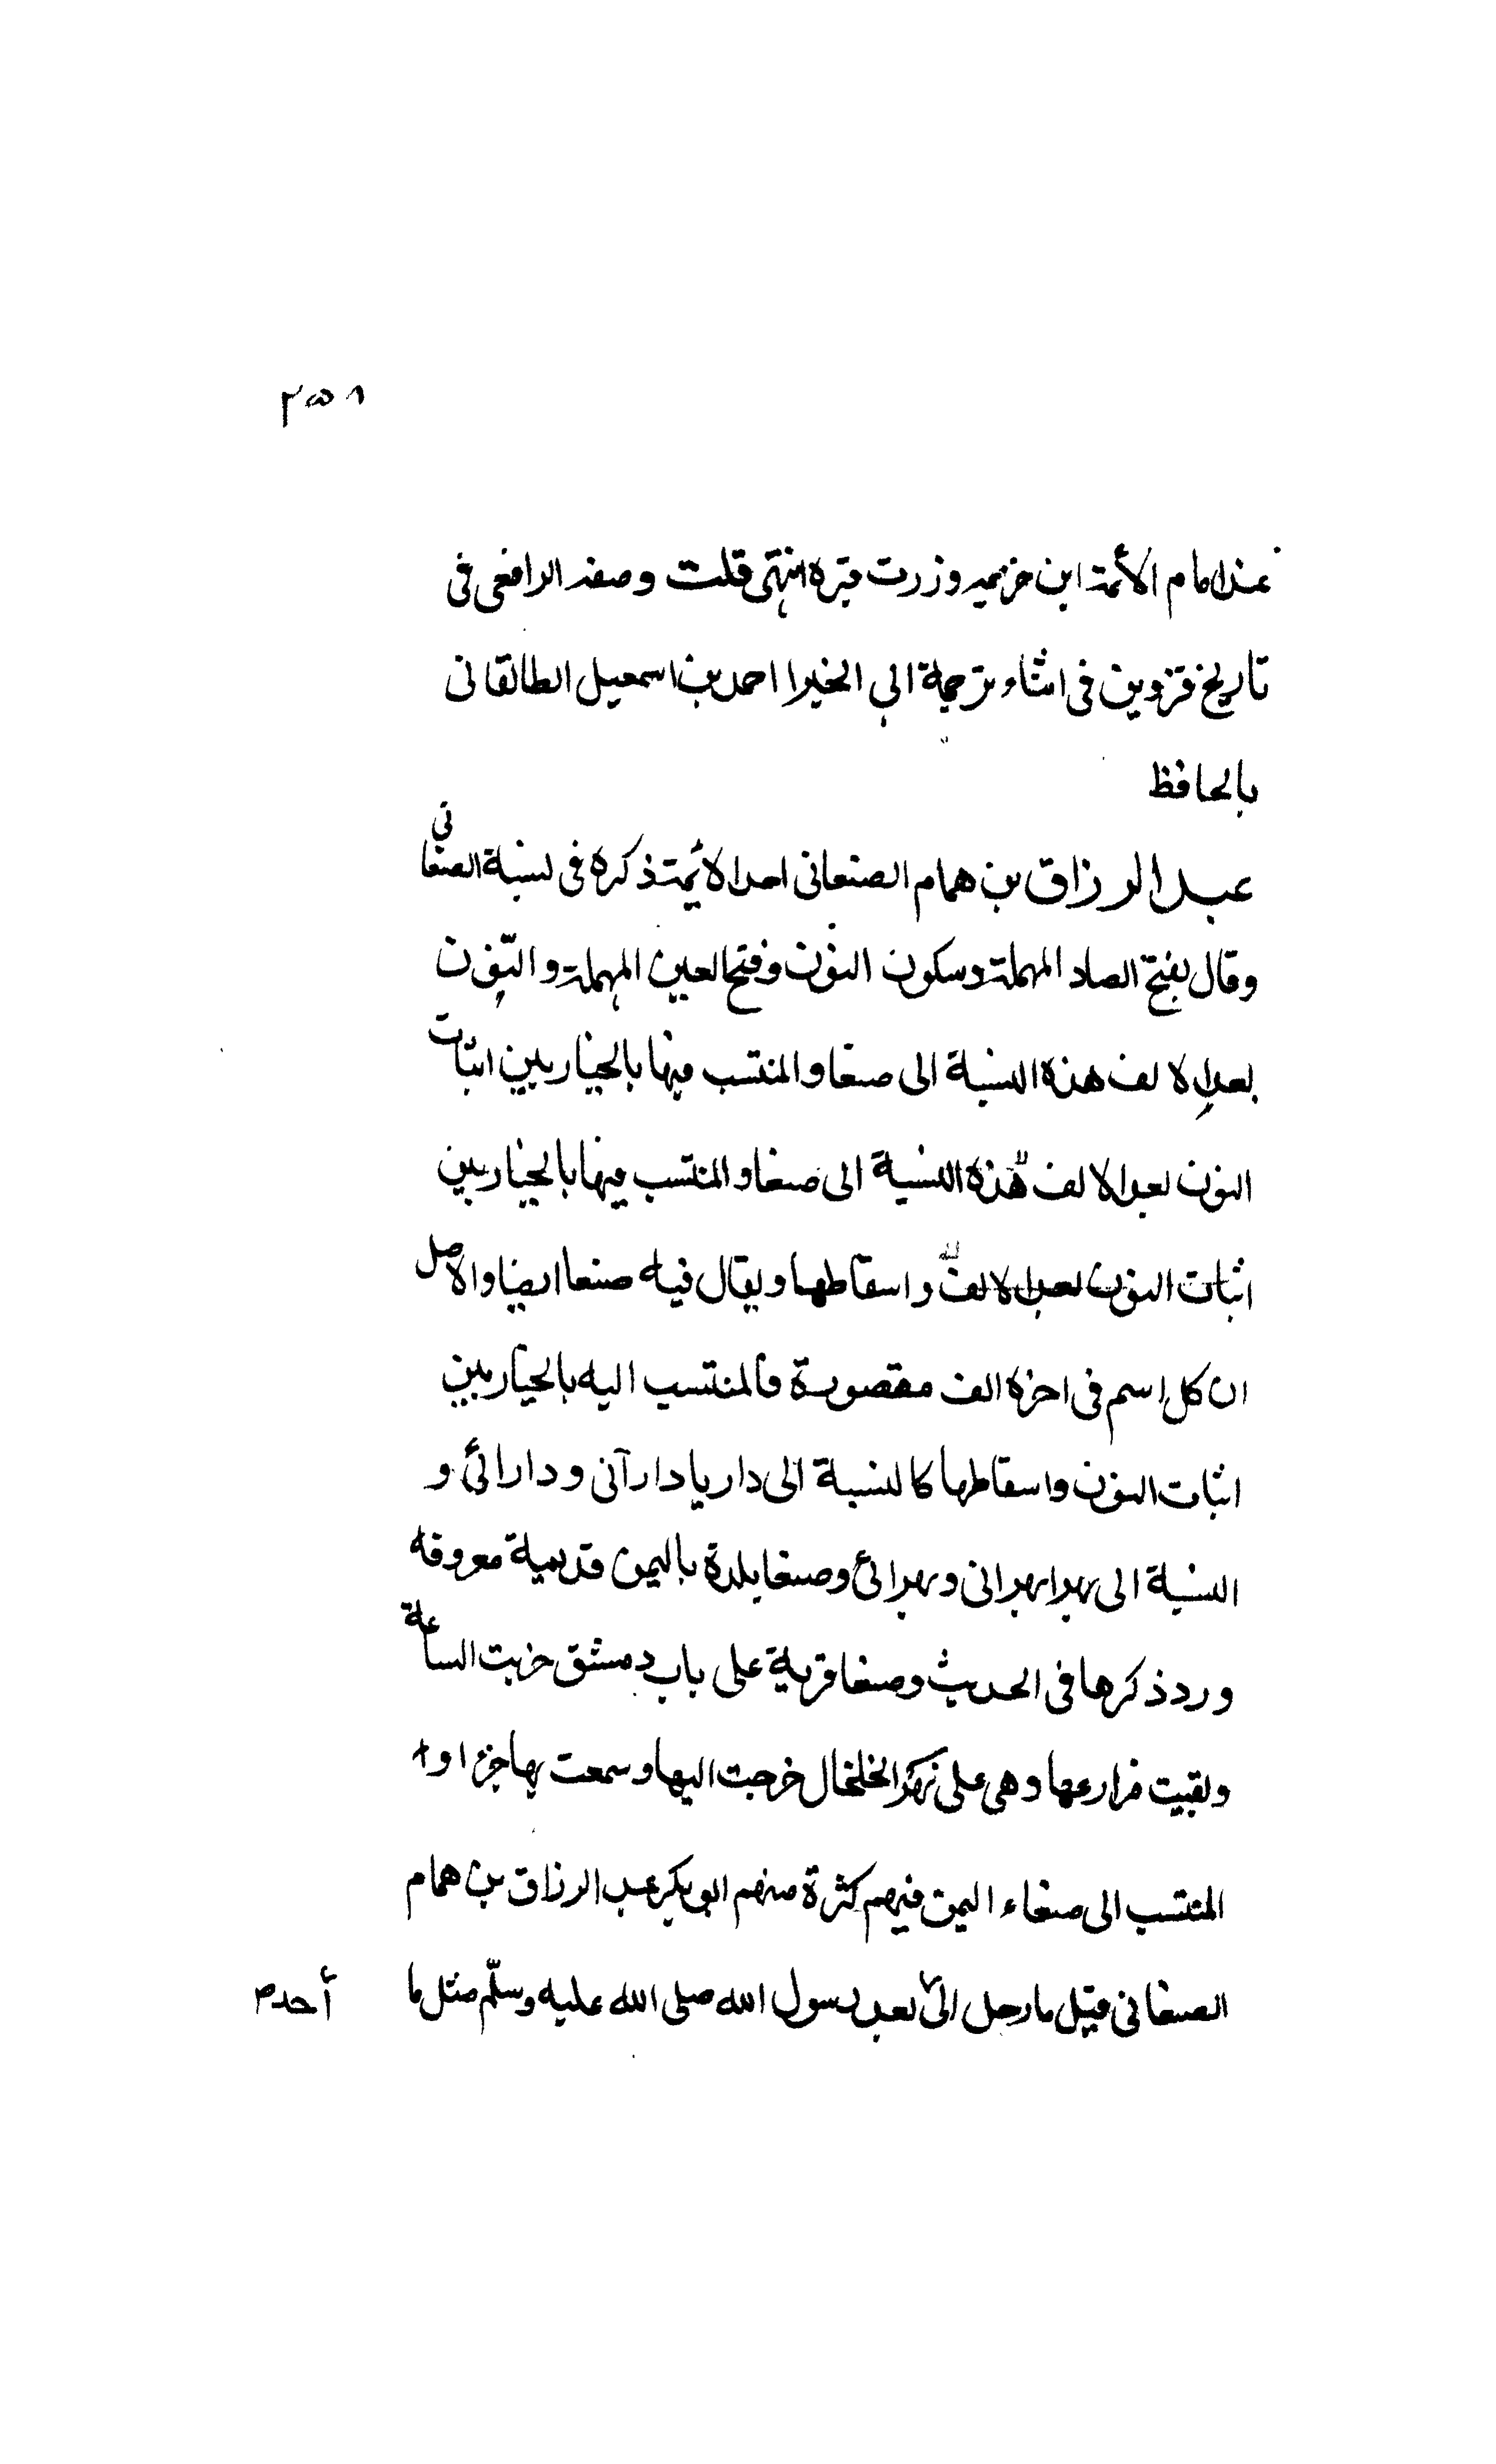 ٢٥٨
عنه امام الأئمة ابن خزيمه وزرت قبره انتهى قلت وصفه الرافعى فى
تاريخ قزوين فى اثناء ترجمة ابى الخير احمد بن اسمعيل الطالقانى
بالحافظ
عبد الرزاق بن همام الصنعانى احد الائمة ذكره فى نسبة الصنعانى
وقال بفتح الصاد المهملة وسكون النون وفتح العين المهملة والنون
بعد الالف هذه النسبة الى صنعا والمنتسب فيها بالخيار بين اثبات
النون بعد الالف هذه النسبة الى صنعا والمنتسب فيها بالخيار بين
اثبات النون بعد الالف واسقاطها ويقال فيه صنعا ايضا والاصل
ان كل اسم فى اخره الف مقصورة فالمنتسب اليه بالخيار بين
اثبات النون واسقاطها كالنسبة الى داريا دارآنى ودارائى و
النسبة الى بهرا بهرانى وبهرائ وصنعا بلدة باليمن قديمة معروفة
ورد ذكرها فى الحديث وصنعا قرية على باب دمشق خربت الساعة
وبقيت مزارعها وهى على نهر الخلخال خرجت اليها وسمعت بها جزءا و
المنتسب الى صنعاء اليمن فيهم كثرة منهم ابو بكر عبد الرزاق بن همام
الصنعانى قيل ما رحل الى بعد رسول الله صلى الله عليه وسلّم مثل ما
أحد ص